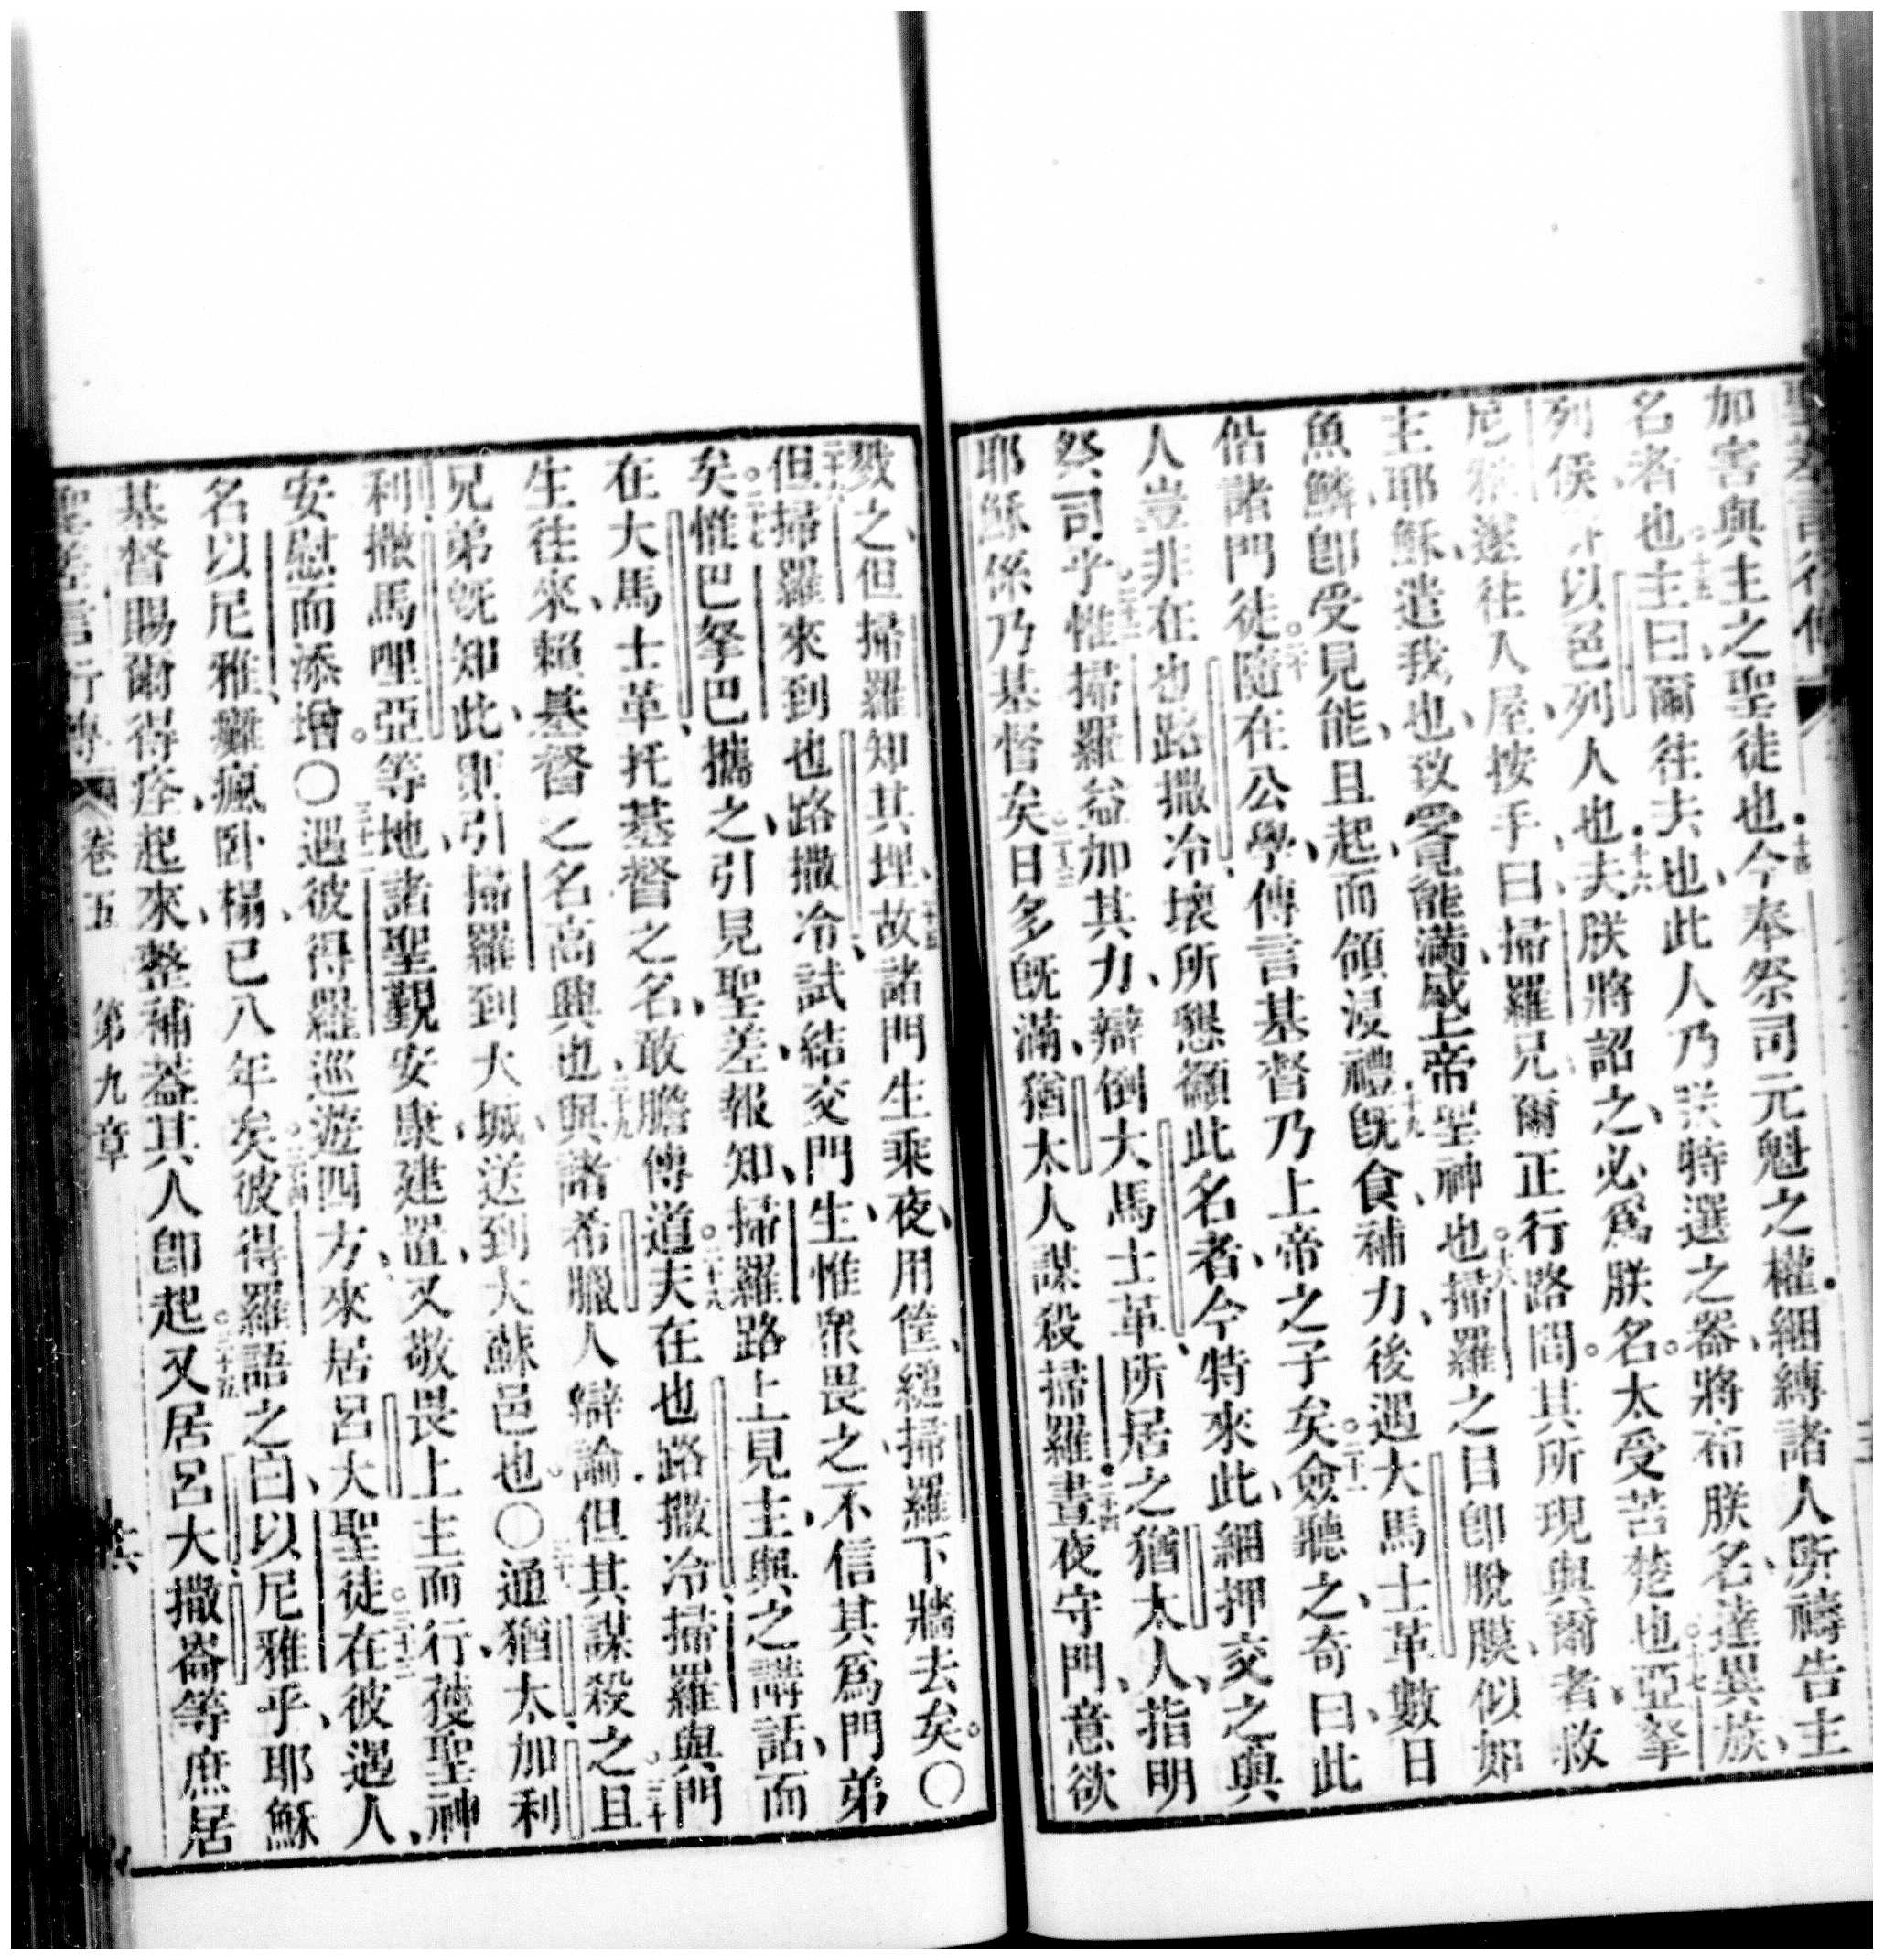 聖差言行傳
加害與主之聖徒也十四今奉祭司元魁之權綑縛諸人所禱告主
名者也十五主曰爾往去也此人乃朕特選之器將布朕名達異族
列侯以色列人也十六夫朕將詔之必爲朕名太受苦楚也十七亞拏
尼雅遂往入屋按手曰掃羅兄爾正行路間其所現與爾者救
主耶穌遣我也致受覓能滿感上帝聖神也十八掃羅之目卽脫膜似如
魚鱗卽受見能且起而領浸禮十九旣食補力後遇大馬士革數日
偕諸門徒二十隨在公學傳言基督乃上帝之子矣二十一僉聽之奇曰此
人豈非在也路撒冷壞所懇籲此名者今特來此綑押交之與
祭司乎二十二惟掃羅益加其力辯倒大馬士革所居之猶太人指明
耶穌係乃基督矣二十三日多旣滿猶太人謀殺掃羅二十四晝夜守門意欲
戮之但掃羅知其埋二十五故諸門生乘夜用筐縋掃羅下牆去矣〇
二十六但掃羅來到也路撒冷試結交門生惟衆畏之不信其爲門弟
矣二十七惟巴拏巴攜之引見聖差報知掃羅路上見主與之講話而
在大馬士革托基督之名敢膽傳道二十八夫在也路撒冷掃羅與門
生往來賴基督之名高興也二十九與諸希臘人辯論但其謀殺之且三十
兄弟旣知此則引掃羅到大城送到大蘇邑也〇三十一通猶太加利
利撒馬哩亞等地諸聖觀安康建置又敬畏上主而行獲聖神
安慰而添增〇三十二遇彼得羅巡遊四方來居呂大聖徒三十三在彼遇人
名以尼雅癱瘋卧榻已八年矣三十四彼得羅語之曰以尼雅乎耶穌
基督賜爾得痊起來整補葢其人卽起三十五又居呂大撒崙等庶居
聖差言行傳 卷五 第九章